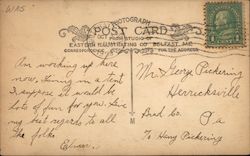 W.N.S
PHOTOGRAPH
POST CARD
OCT
FROM STUDIO OF
EASTERN ILLUSTRATING CO. BELFAST, ME.
CORRESPONDENCE
FOR THE ADDRESS
Am working up here
now, living in a tent
I suppose it would be
lots of fun for you. Give
my best regards to all
the folks
Oliver.
Mr. George Pickering
Herricksville
Brad Co.
Pa
To Harry Pickering
M